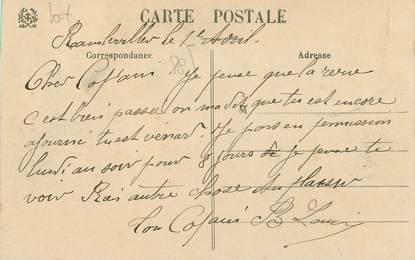 lot
CARTE POSTALE
Rambervillers le 1e Avril.
Correspondance
Adresse
Cher Copain Je pense que la revue
c'est bien passer on ma dit que tu est encore
ajourné tu est venard. Je pars en permission
lundi au soir pour 8 jours je pense te
voir Rien autre chose au plaisir
Ton Copain B Louis